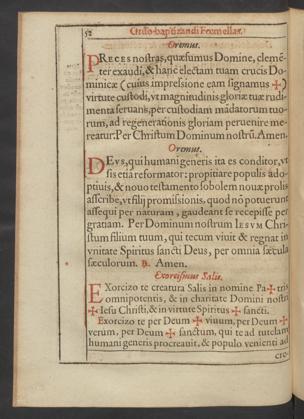 52
Ordo baptizandi Fœmellas.
Oremus.
PRECES nostras, quæsumus Domine, clemē-
ter exaudi, & hanc electam tuam crucis Do-
minicæ (cuius impressione eam signamus ✠)
virtute custodi, vt magnitudinis gloriæ tuæ rudi-
menta seruans, per custodiam mādatorum tuo-
rum, ad regenerationis gloriam peruenire me-
reatur. Per Christum Dominum nostrū. Amen.
Oremus.
DEVS, qui humani generis ita es conditor, vt
sis etiā reformator: propitiare populis ado-
ptiuis, & nouo testamento sobolem nouæ prolis
ascribe, vt filij promissionis, quod nō potuerunt
assequi per naturam, gaudeant se recepisse per
gratiam. Per Dominum nostrum IESVM Chri-
stum filium tuum, qui tecum viuit & regnat in
vnitate Spiritus sancti Deus, per omnia sæcula
sæculorum. ℟. Amen.
Exorcismus Salis.
EXorcizo te creatura Salis in nomine Pa✠tris
omnipotentis, & in charitate Domini nostri
✠ Iesu Christi, & in virtute Spiritus ✠ sancti.
Exorcizo te per Deum ✠ viuum, per Deum ✠
verum, per Deum ✠ sanctum, qui te ad tutelam
humani generis procreauit, & populo venienti ad
cre-